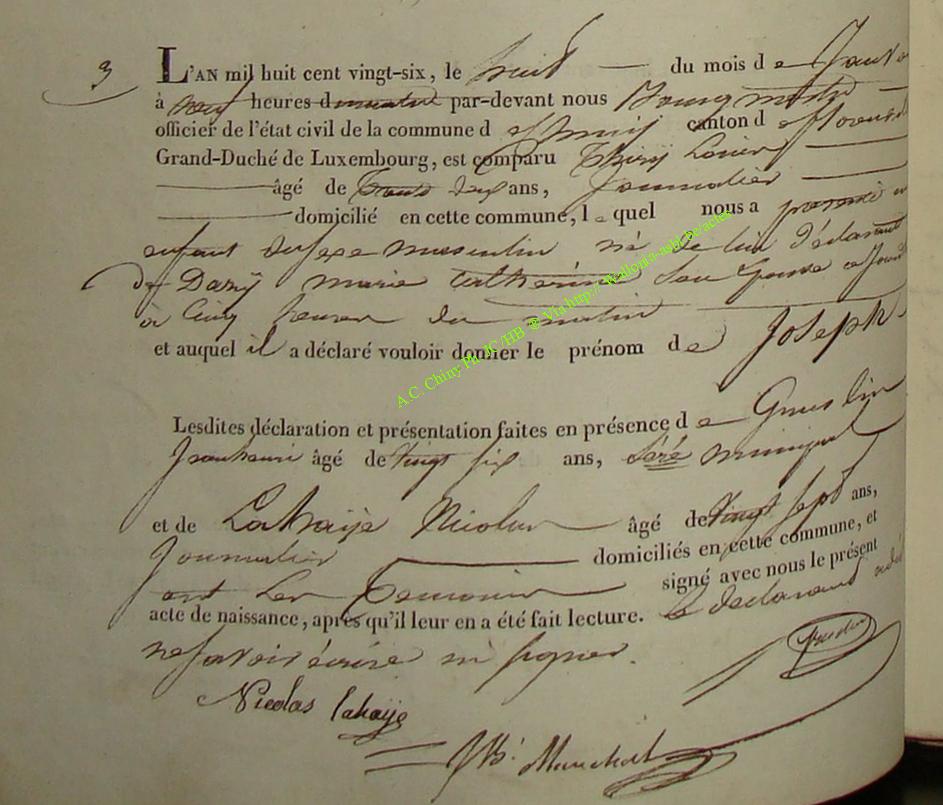 3 L'AN mil huit cent vingt-six, le huit du mois de Janvier
à neuf heures du matin par-devant nous Bourgmestre
officier de l'état civil de la commune de Chiny canton de florenville
Grand-Duché de Luxembourg, est comparu Thiry
âgé de trente ans, Journalier
domicilié en cette commune, lequel nous a présenté un
enfant du sexe masculin né de lui Déclarant
de Dazÿ marie Catherine son Epouse ce Jourd
à Cinq heures du matin
et auquel il a déclaré vouloir donner le prénom de Joseph
Lesdites déclaration et présentation faites en présence de
Jeanhenri âgé de vingt six ans,
et de Lahaÿe Nicolas âgé de vingt sept ans,
Journalier domiciliés en cette commune, et
ont les temoins signé avec nous le présent
acte de naissance, après qu'il leur en a été fait lecture. le declarant
ne savoir écrire ni signer.
Nicolas lahaÿe
JB. Marechal
A.C. Chiny Ph JC/HB ® Via http://Wallonia-asbl.be/actes